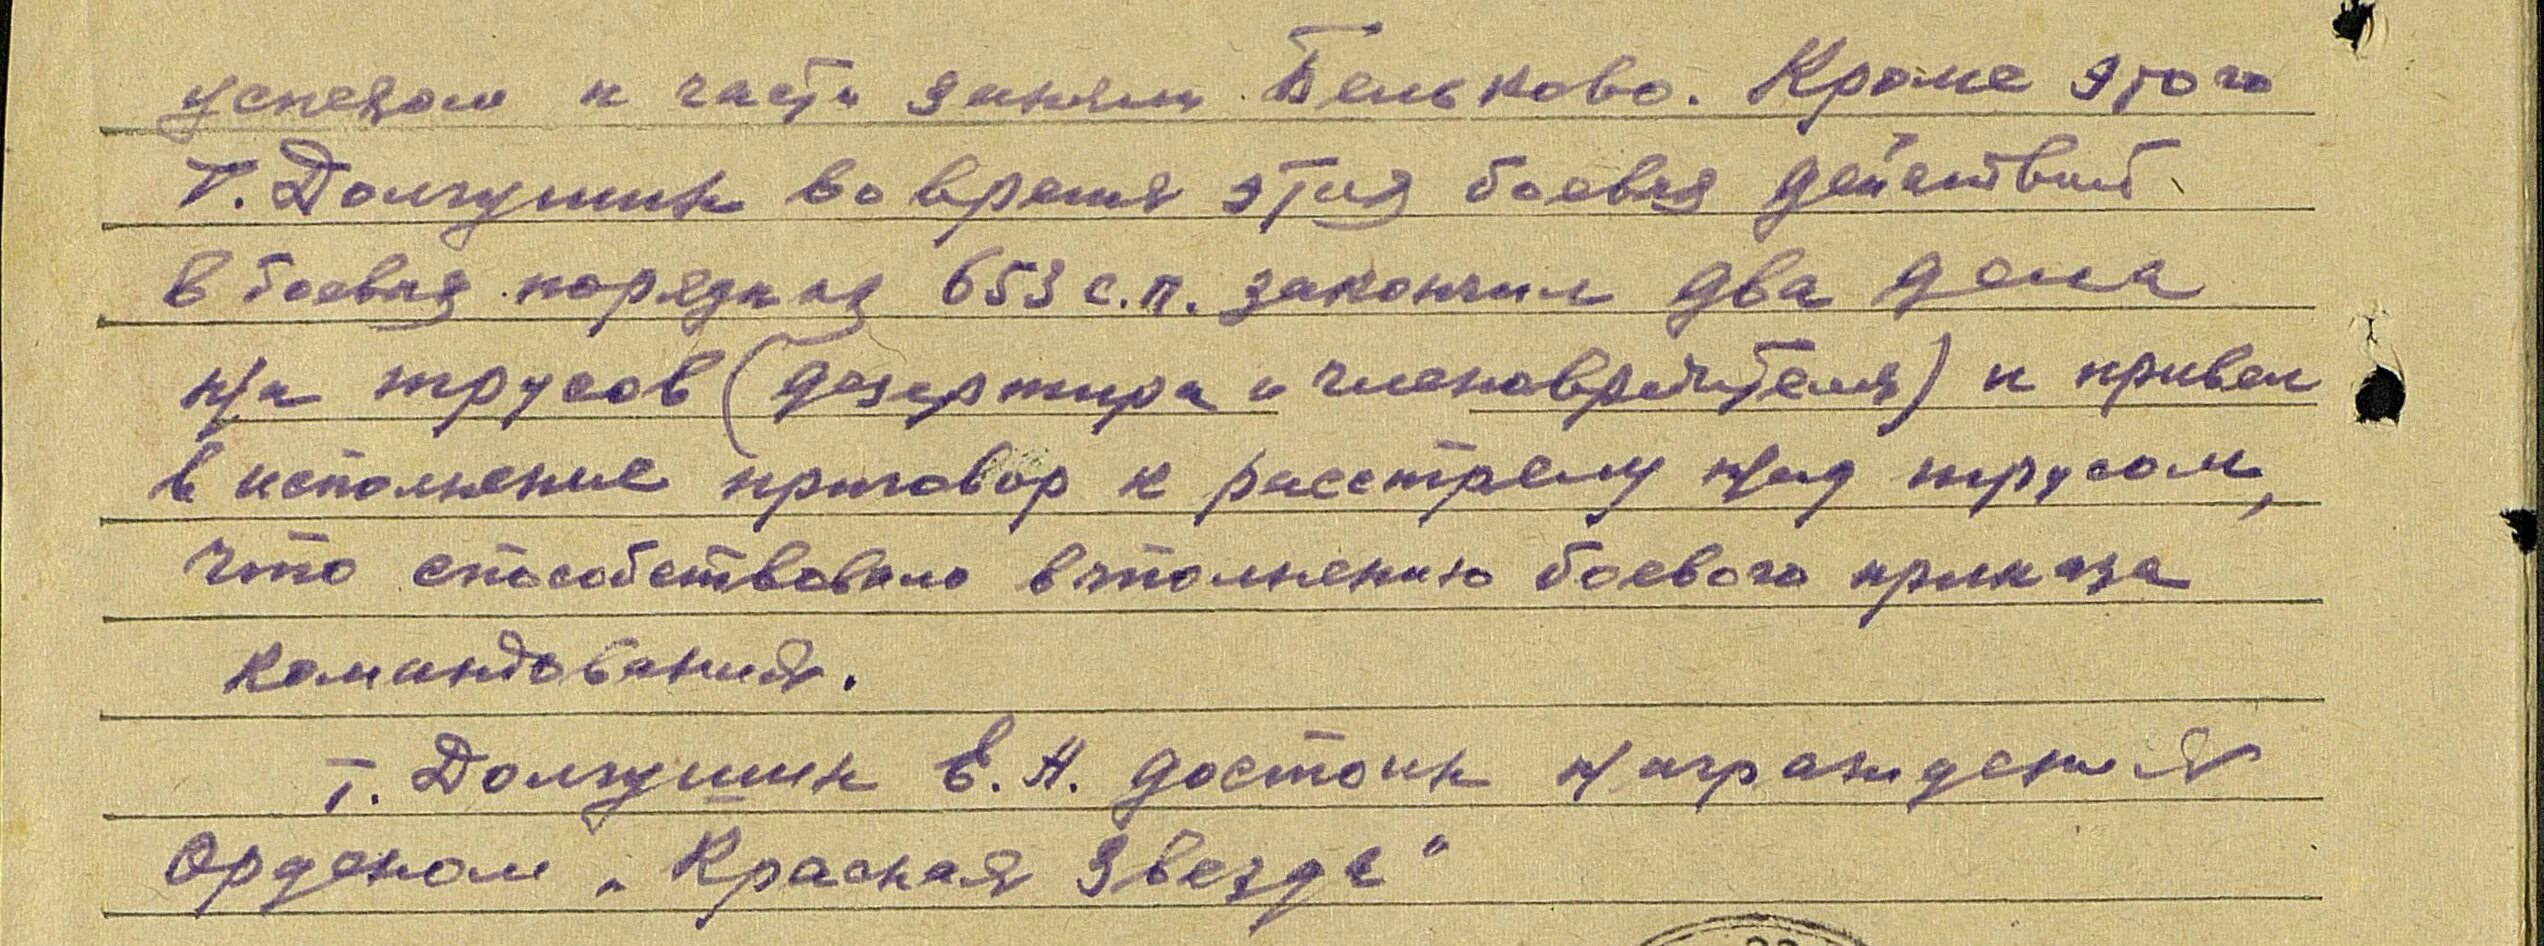 успехом и части заняли Бельково. Кроме этого
т. Долгушин во время этих боевых действий
в боевых порядках 653 с.п. закончил два дела
на трусов (дезертира и членовредителя) и привел
в исполнение приговор к расстрелу над трусом,
что способствовало выполнению боевого приказа
командования.
т. Долгушин Е.А. достоин награждения
Орденом „Красная Звезда"